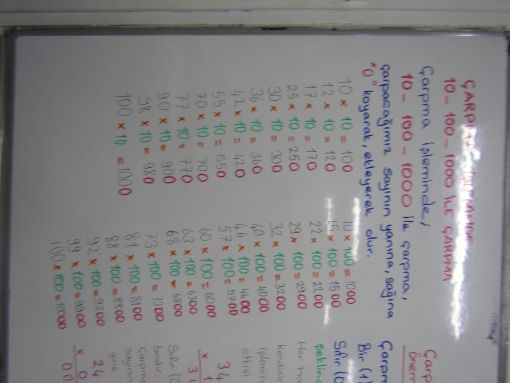 10 - 100 - 1000 İLE ÇARPMA
Çarpma işleminde,
10 - 100 - 1000 ile çarpma,
çarpacağımız sayının yanına, sağına
"0" koyarak, ekleyerek olur.
10 x 10 = 100
12 x 10 = 120
17 x 10 = 170
25 x 10 = 250
30 x 10 = 300
36 x 10 = 360
42 x 10 = 420
55 x 10 = 550
70 x 10 = 700
77 x 10 = 770
90 x 10 = 900
98 x 10 = 980
100 x 10 = 1000
10 x 100 = 1000
15 x 100 = 1500
22 x 100 = 2200
29 x 100 = 2900
32 x 100 = 3200
40 x 100 = 4000
46 x 100 = 4600
57 x 100 = 5700
60 x 100 = 6000
63 x 100 = 6300
68 x 100 = 6800
73 x 100 = 7300
81 x 100 = 8100
88 x 100 = 8800
92 x 100 = 9200
99 x 100 = 9900
100 x 100 = 10000
Çarp
önem
Çarpm
Bir (1)
Sıfır (
şeklind
Her ha
kendisin
işlemin
etkisi
34
x 1
34
Sıfır (
birdir.
Çarpma
sayının
yine
24
x 0
00